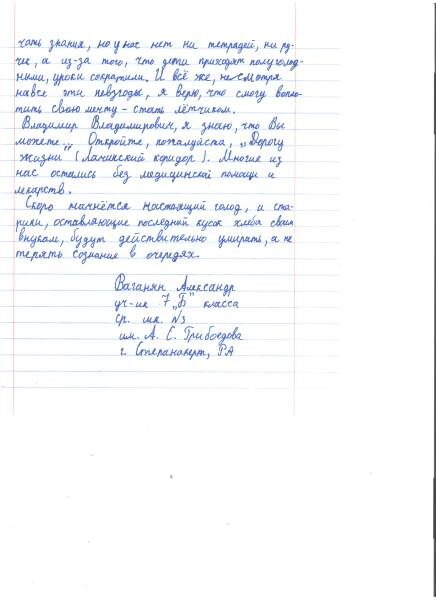 чать знания, но у нас нет ни тетрадей, ни ру-
чек, а из-за того, что дети приходят полуголод-
ными, уроки сократили. И всё же, не смотря
на все эти невзгоды, я верю, что смогу вопло-
тить свою мечту - стать лётчиком.
Владимир Владимирович, я знаю, что Вы
можете,, Откройте, пожалуйста, „Дорогу
жизни (Лачинский коридор). Многие из
нас остались без медицинской помощи и
лекарств.
Скоро начнётся настоящий голод, и ста-
рики, оставляющие последний кусок хлеба своим
внукам, будут действительно умирать, а не
терять сознание в очередях.
Ваганян Александр
уч-ик 7 „Б" класса
Ср. шк. №3
им. А. С. Грибоедова
г. Степанакерт, РА